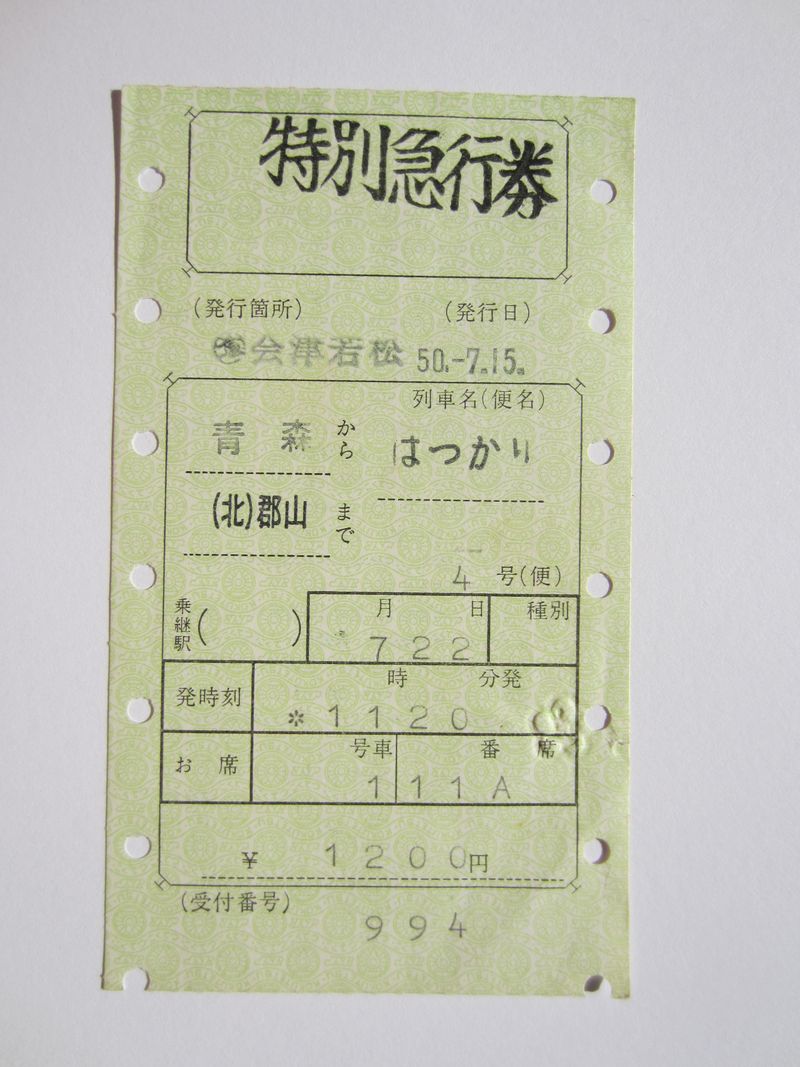 特別急行券
(発行箇所) (発行日)
会津若松 50.-7.15
列車名(便名)
青森から はつかり
(北)郡山まで
4 号(便)
乗継駅( ) 月 日 種別
7 22
発時刻 時 分発
*1120
お席 号車 番 席
1 11A
¥ 1200円
(受付番号)
994